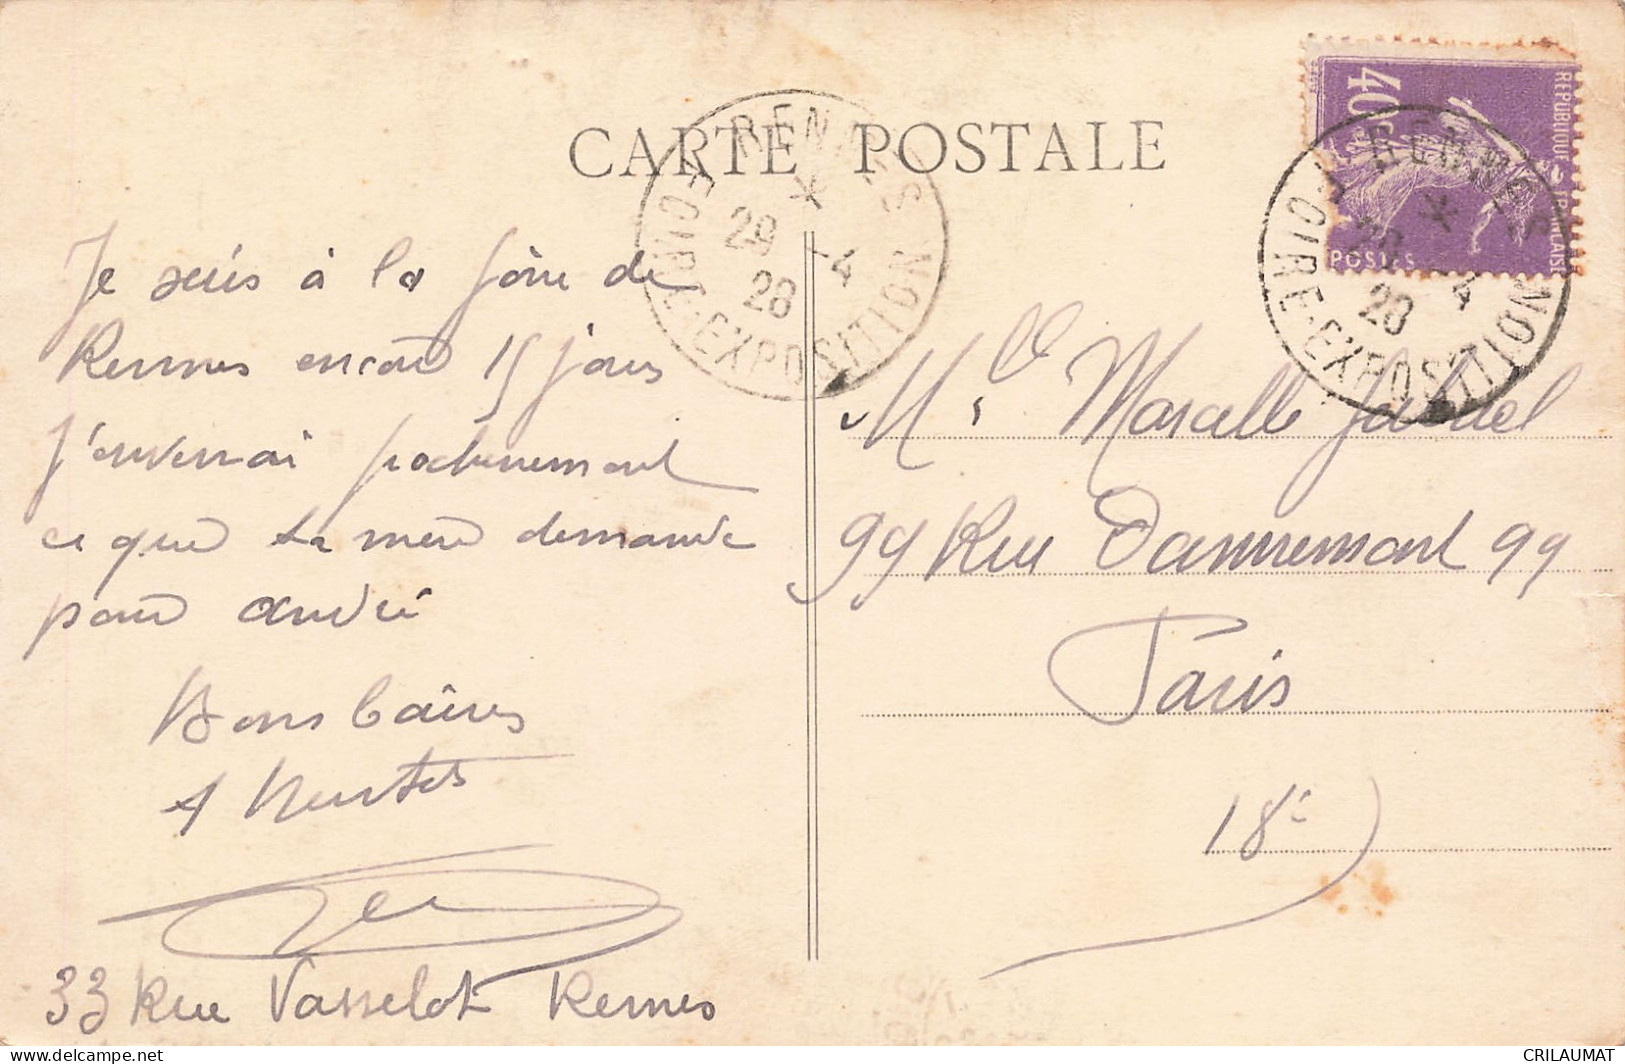 CARTE POSTALE
RENNES
29 -4
28
FOIRE-EXPOSITION
REPUBLIQUE FRANCAISE
40c
POSTES
RENNES
29 -4
28
FOIRE-EXPOSITION
Je suis à la foire de
Rennes encore 15 jours
J'enverrai prochenement
ce que ta mere demande
pour andré
Bons baisers
à toutes
33 Rue Vasselot Rennes
Melle Marcelle
99 Rue Damremont 99
Paris
18e
delcampe.net
CRILAUMAT